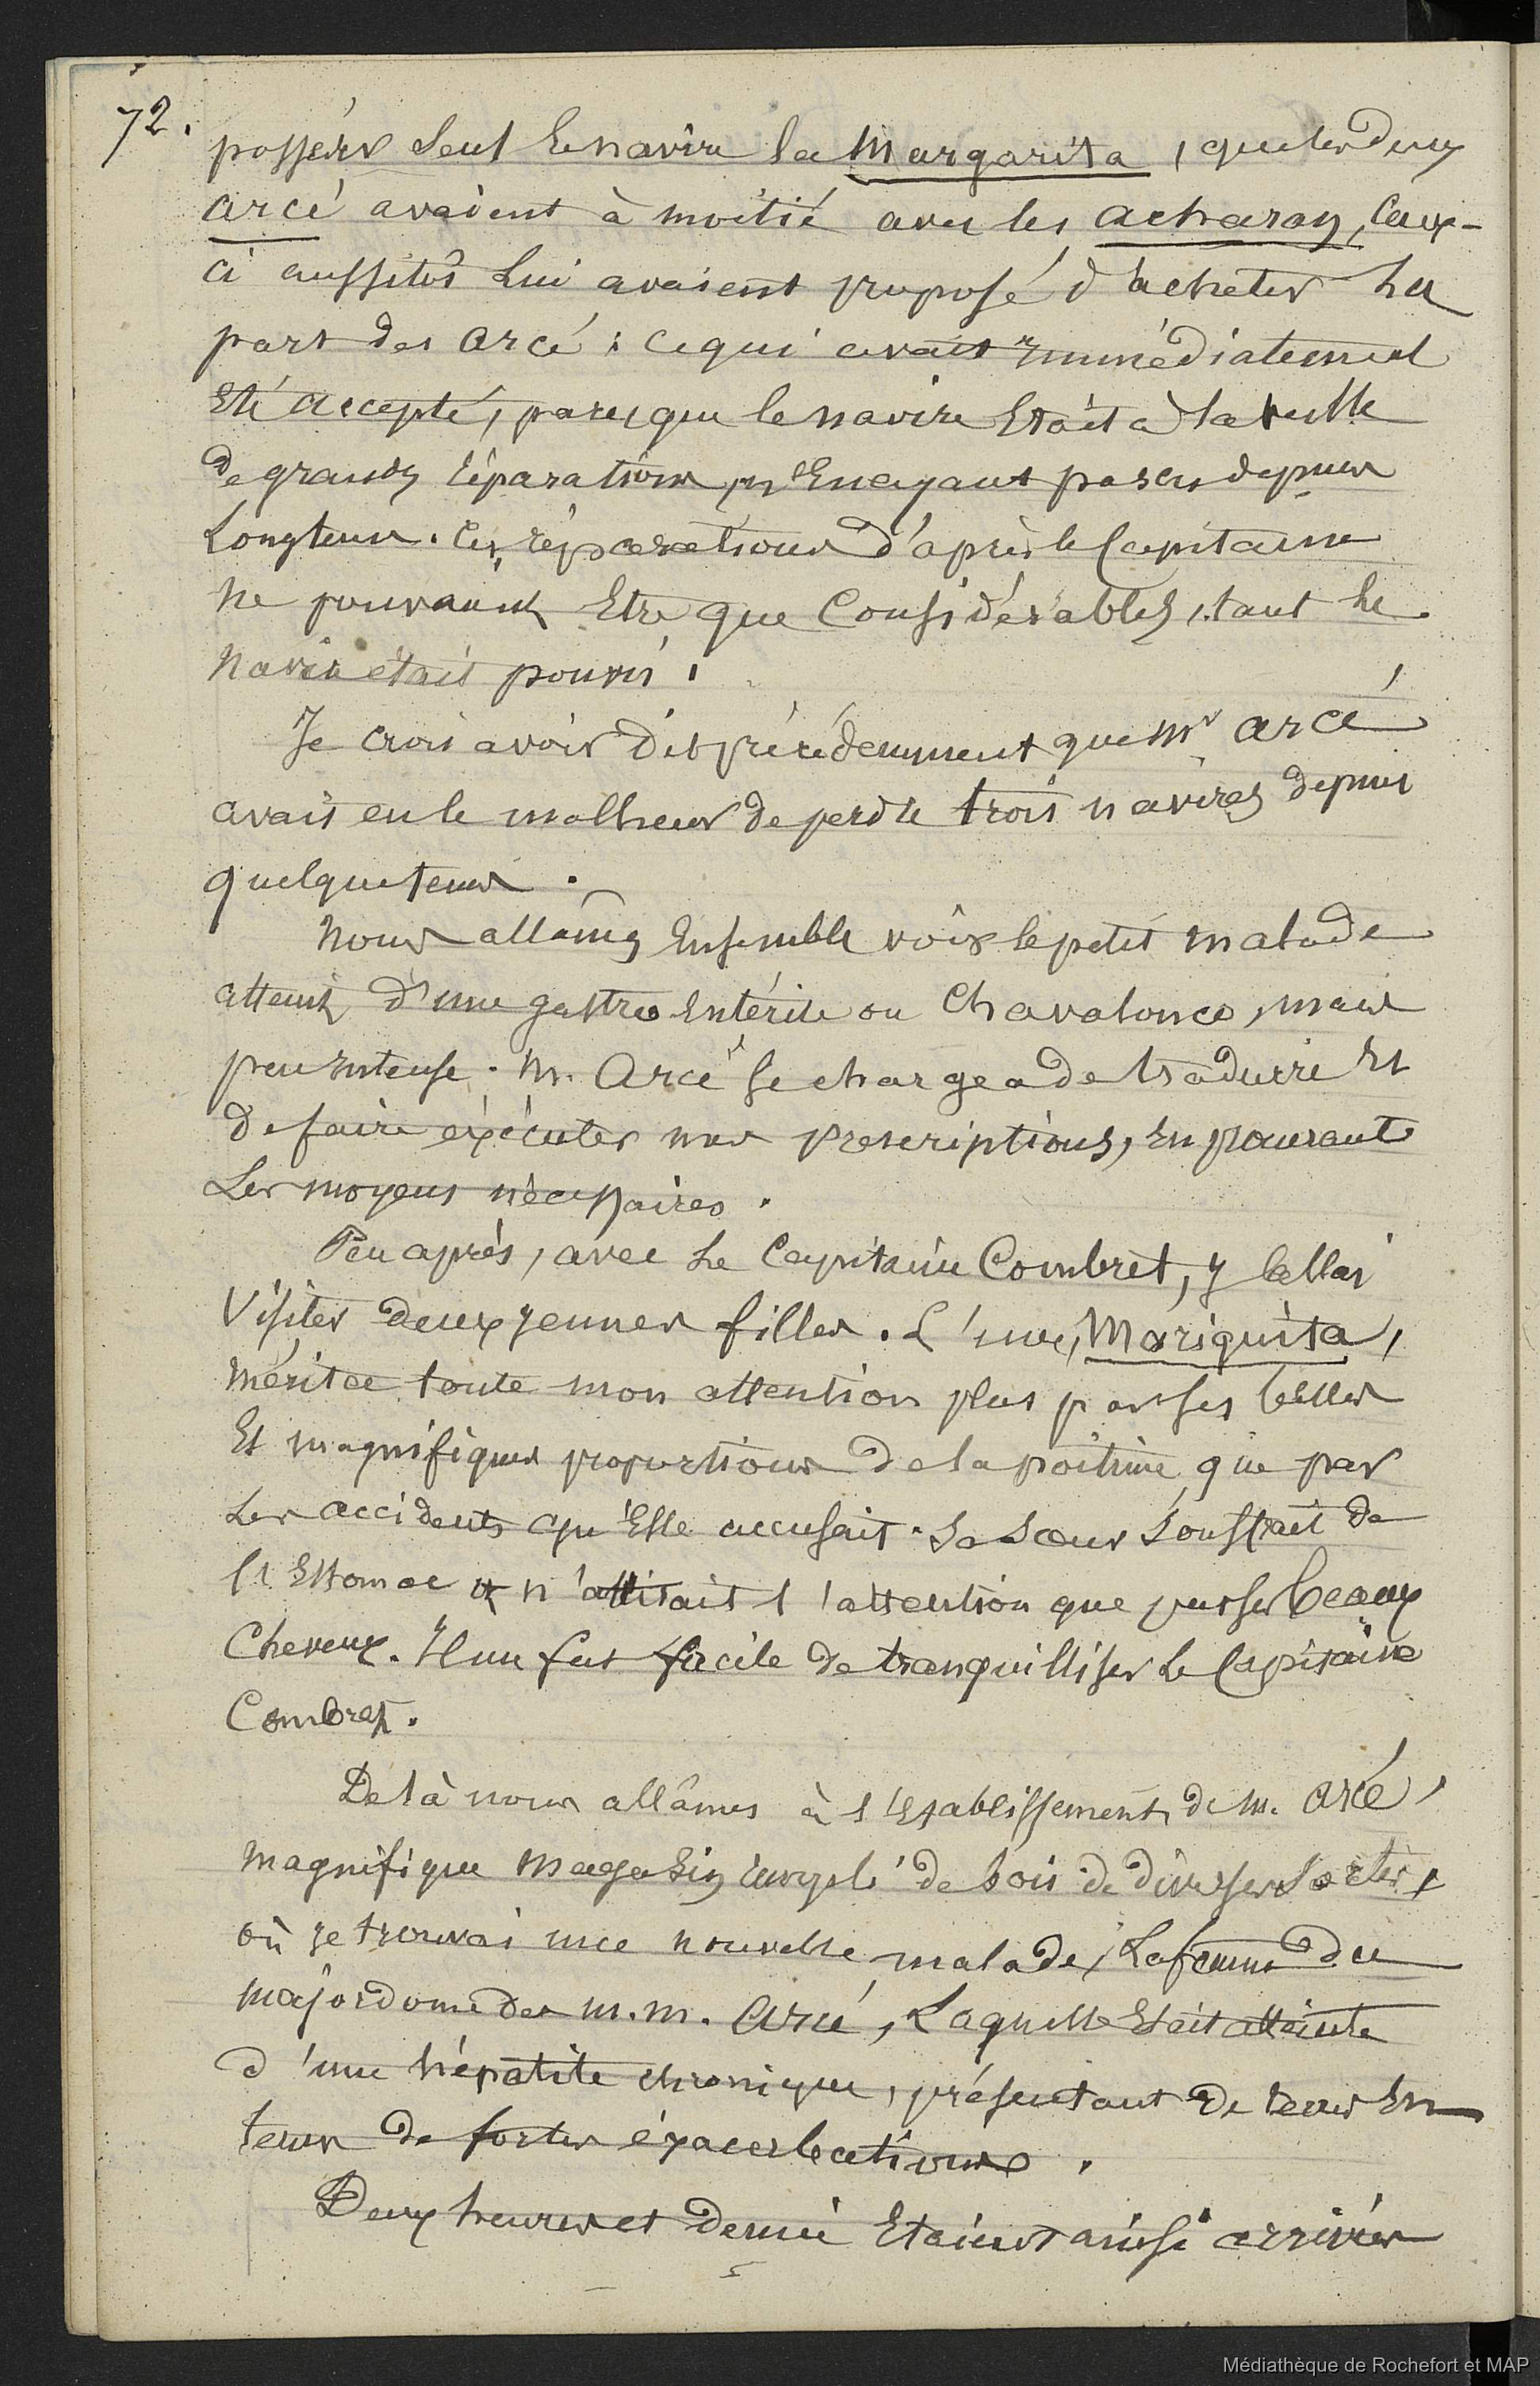 72.
possédér seul le navire la Margarita, que les deux
arcé avaient à moitié avec les acharan, Ceux-
ci aussitôt lui avaient proposé d'acheter la
part des arcé : ce qui avait immédiatement
Eté accepté, parceque le navire Etait à la veille
de grands réparations, n'En ayant pas eu depuis
Longtems. Ces réparations d'après le Capitaine
ne pouvaient Etre que Considérables, tant le
navire était pourri.
Je crois avoir dit précédemment que Mr arcé
avait eu le malheur de perdre trois navires depuis
quelque tems.
Nous allâmes Ensemble voir le petit malade
atteint d'une gastro Entérite ou Chavalonco, mais
peu intense. M. Arcé se chargea de traduire Et
de faire éxécuter mes prescriptions, En
Les moyens nécessaires.
Peu après, avec Le Capitaine Combret, j'allai
Visiter deux jeunes filles. L'une, Mariquita,
mérita toute mon attention plus par ses belles
Et magnifiques proportions de la poitrine que par
Les accidents qu'Elle accusait. Sa soeur souffrait de
l'Estomac et n'attirait l'attention que par ses beaux
Cheveux. Il me fut facile de tranquilliser Le Capitaine
Combret.
De là nous allâmes à l'Etablissement de M. Arcé,
magnifique magasin rempli de bois de diverses sortes,
où je trouvai une nouvelle malade, La femme du
majordome des M.M. Arcé, Laquelle Etait atteinte
d'une hépatite chronique, présentant de tems En
tems de fortes éxacerbations.
Deux heures et demie Etaient ainsi arrivées
Médiathèque de Rochefort et MAP